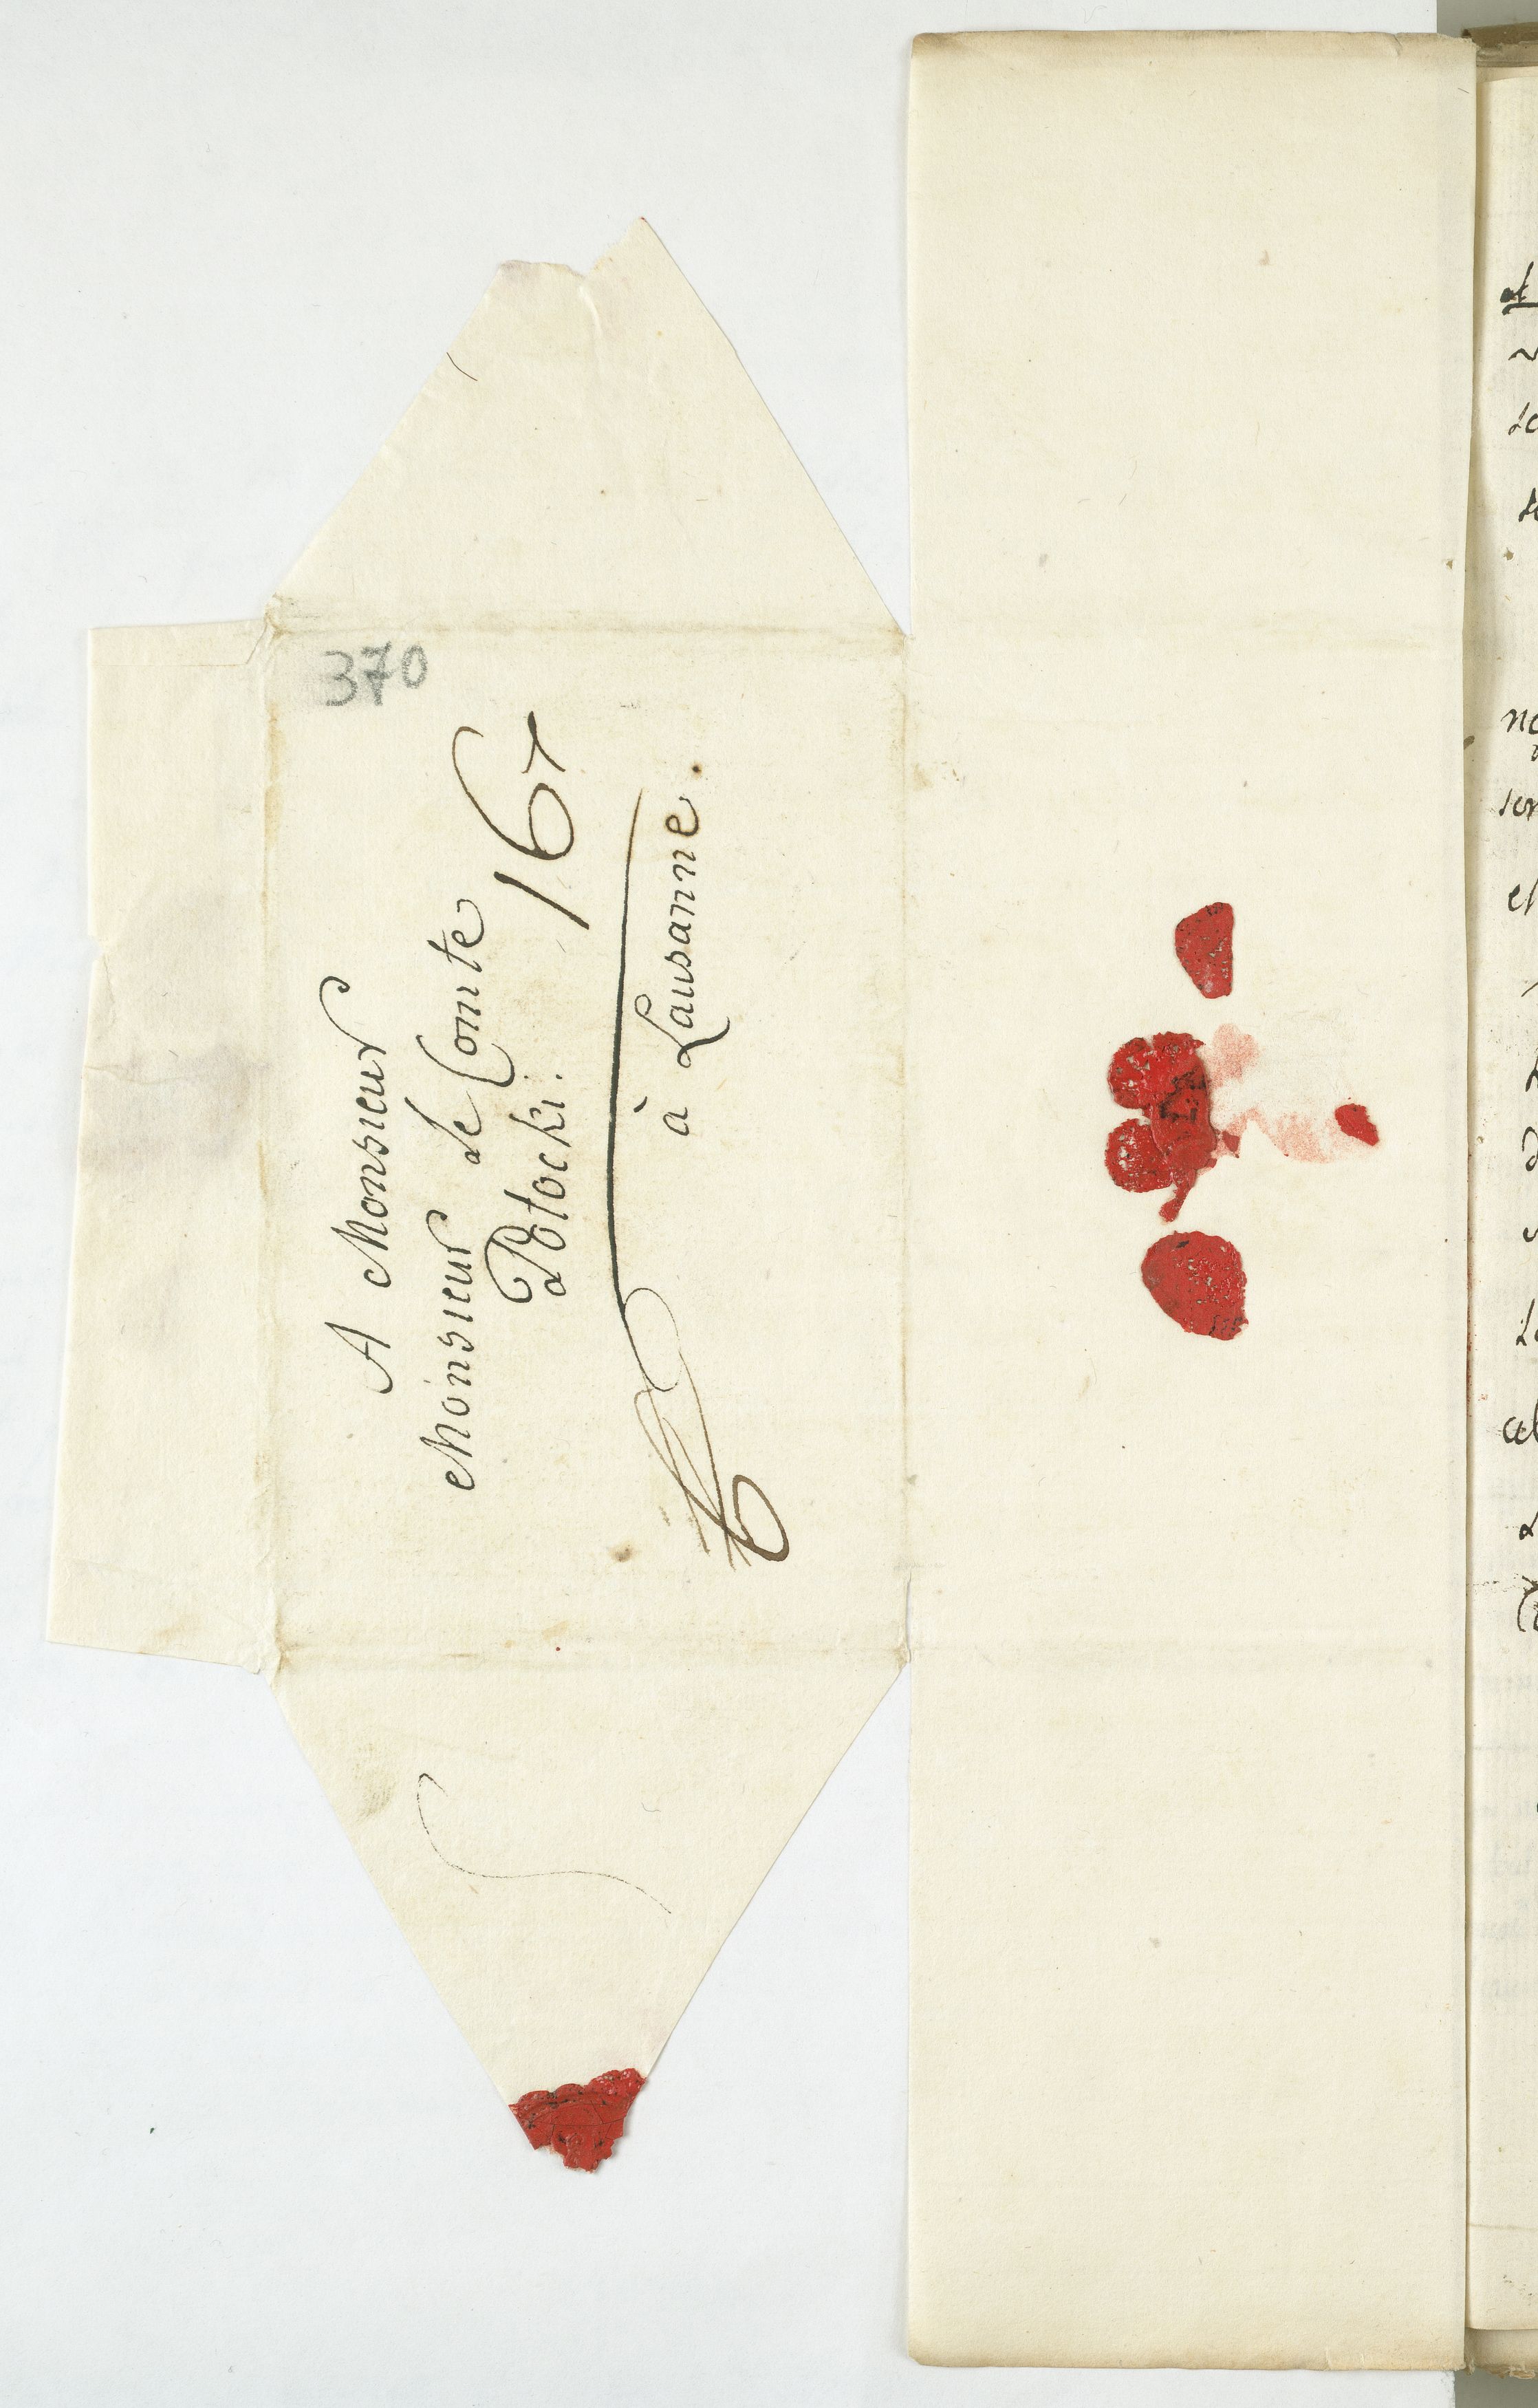 370
A Monsieur
Monsieur le Comte
Potocki.
16x
à Lausanne.